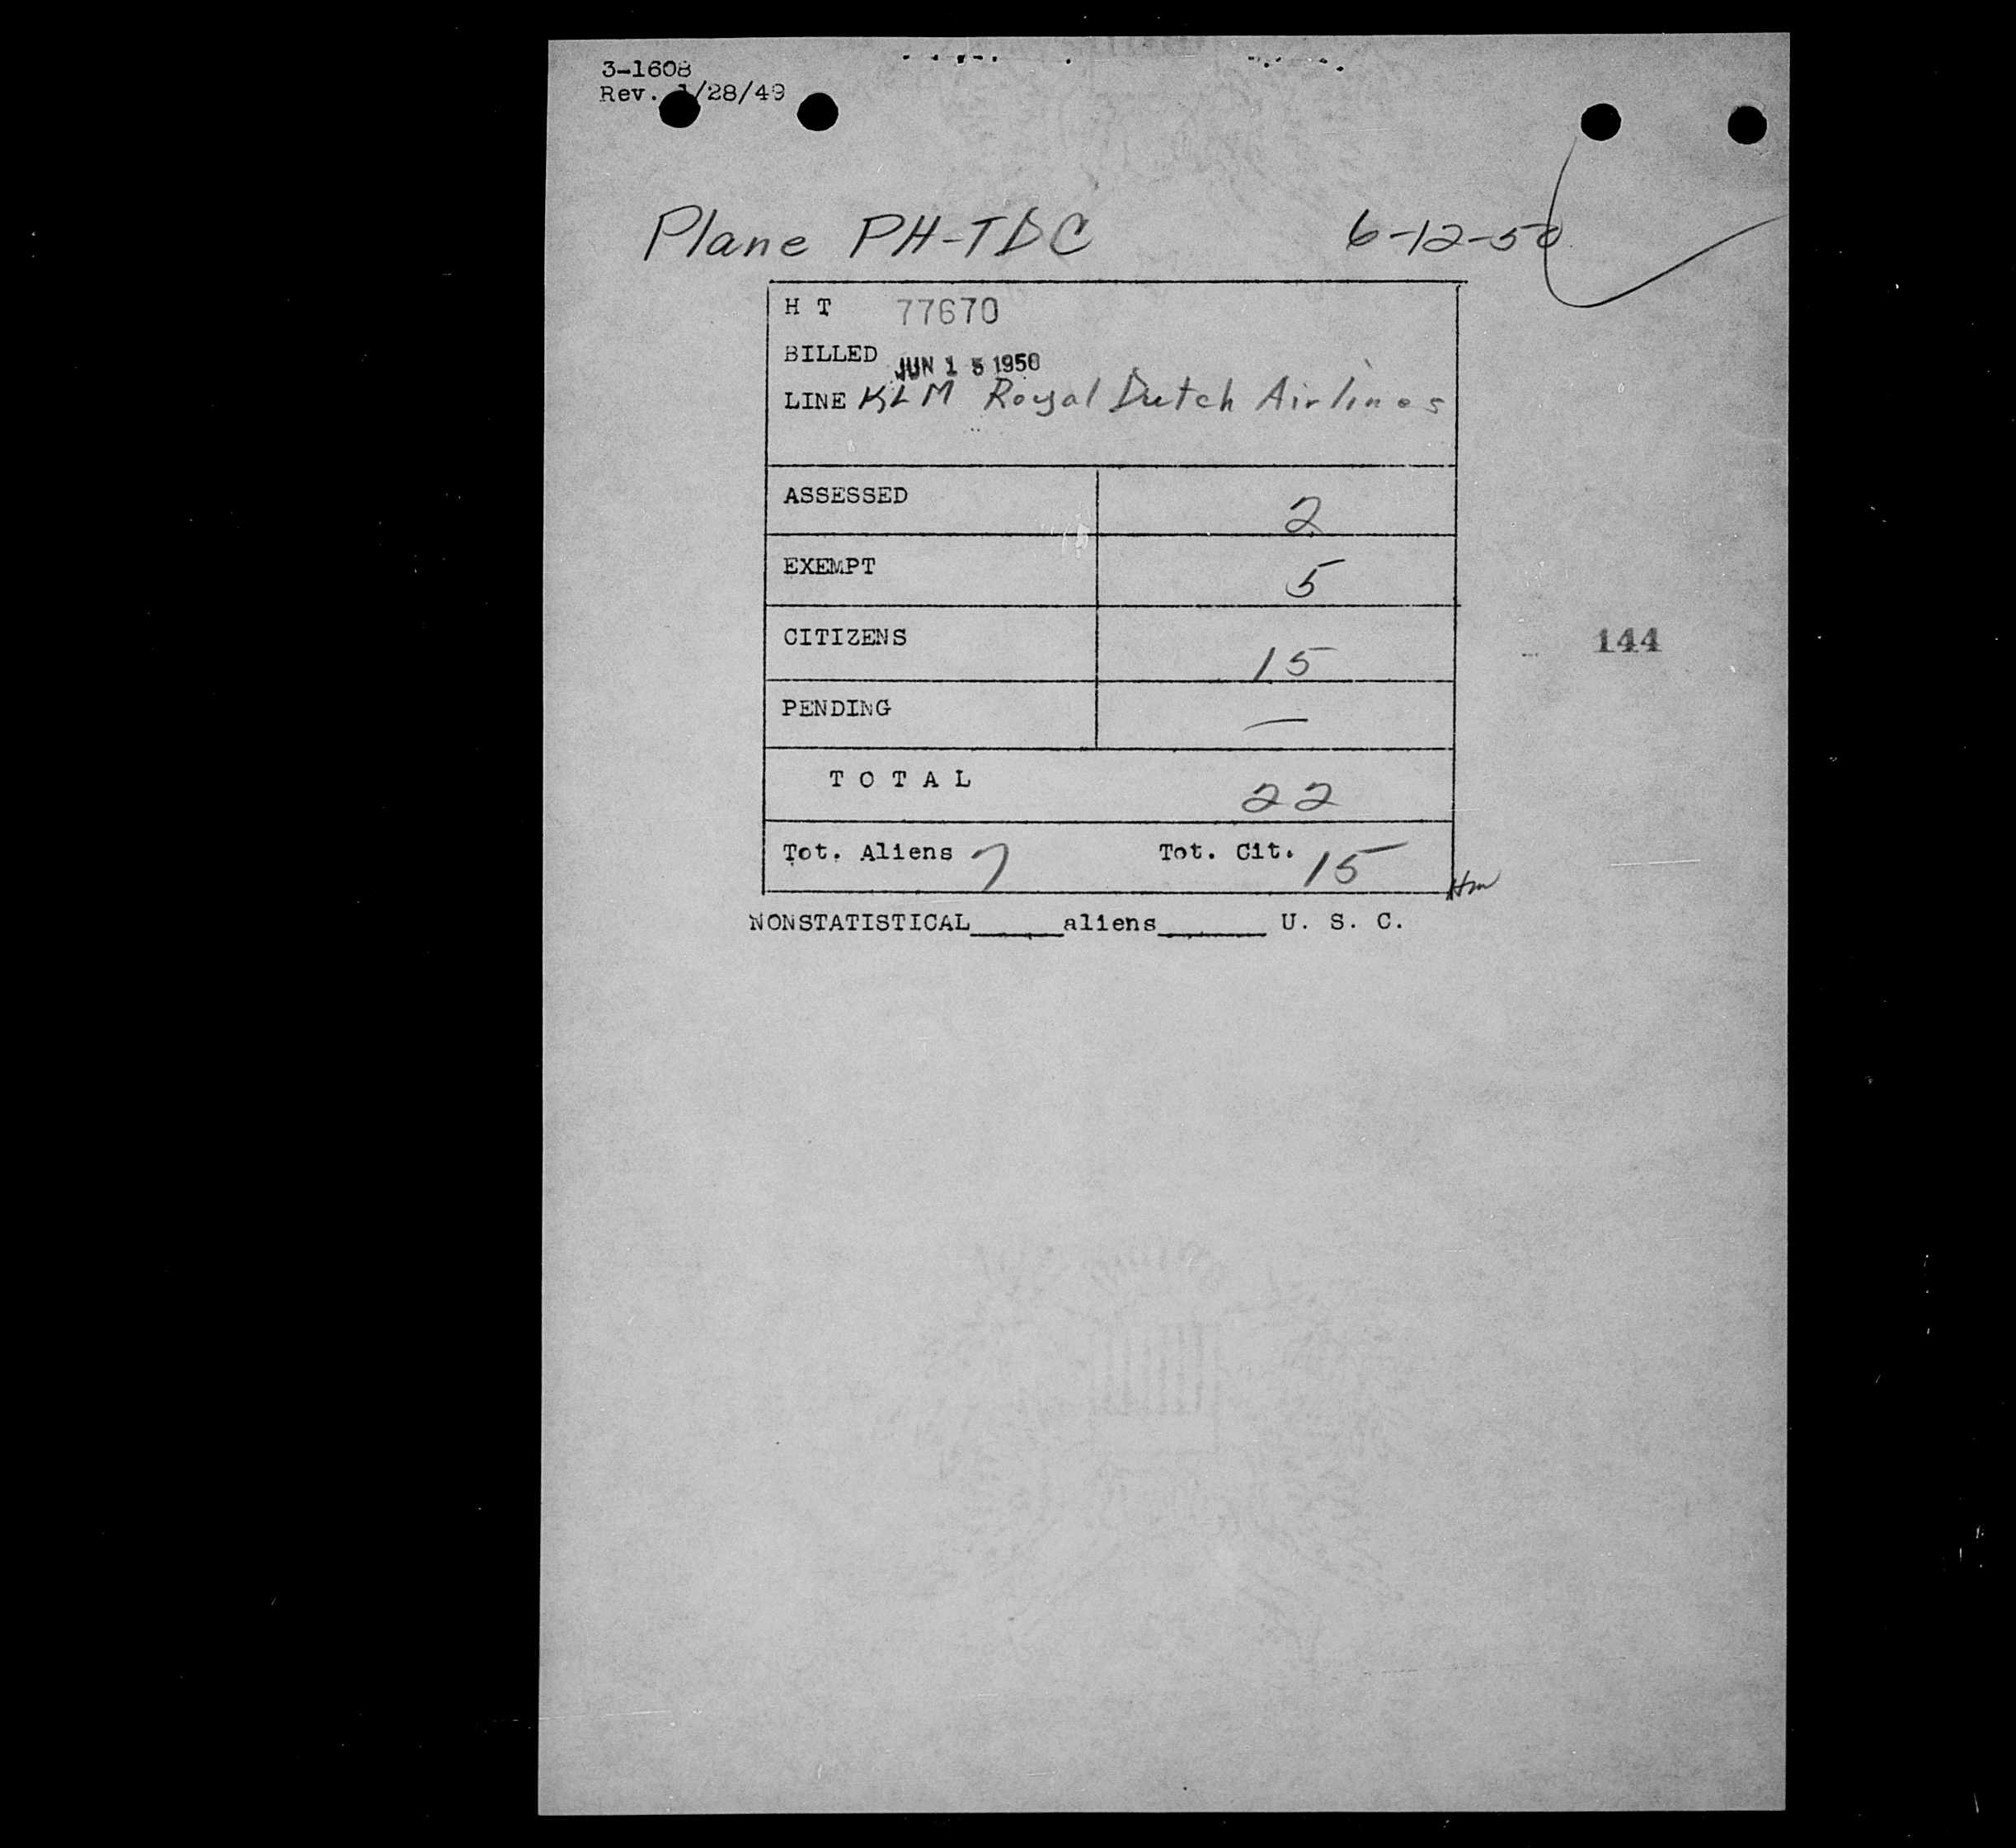 3-1608
Rev. 1/28/49
Plane PH-TDC 6-12-50
H T 77670
BILLED JUN 15 1950
LINE KLM Royal Dutch Airlines
ASSESSED 2
EXEMPT 5
CITIZENS 15
144
PENDING —
T O T A L 22
Tot. Aliens 7 Tot. Cit. 15
Hm
NONSTATISTICAL_____aliens______ U. S. C.